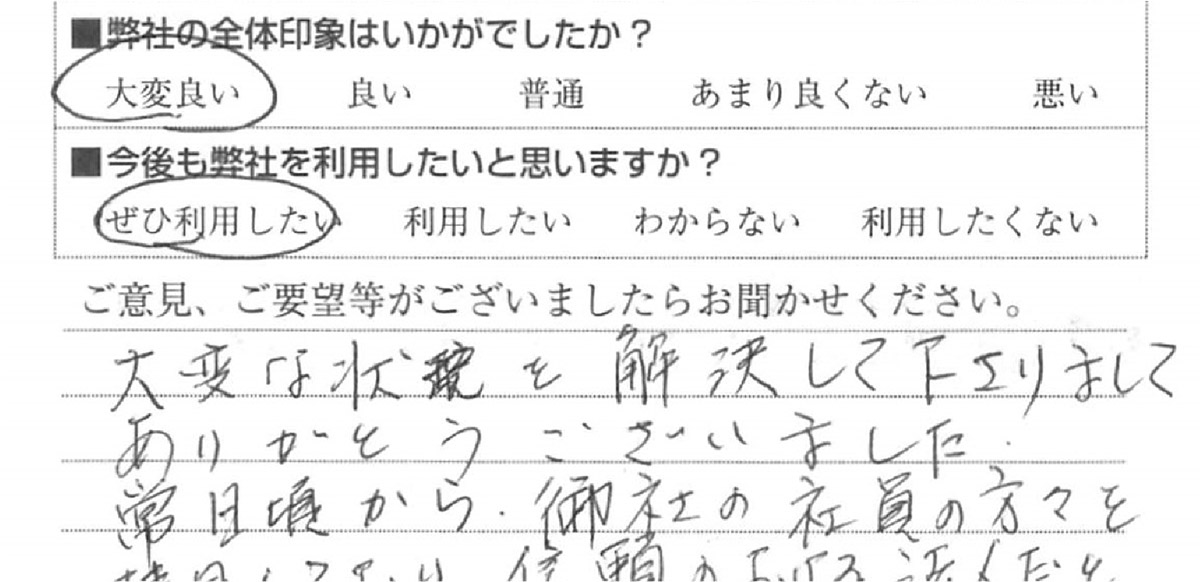 ■弊社の全体印象はいかがでしたか？
大変良い 良い 普通 あまり良くない 悪い
■今後も弊社を利用したいと思いますか？
ぜひ利用したい 利用したい わからない 利用したくない
ご意見、ご要望等がございましたらお聞かせください。
大変な状況を解決して下さりまして
ありがとうございました.
常日頃から.御社の社員の方々を